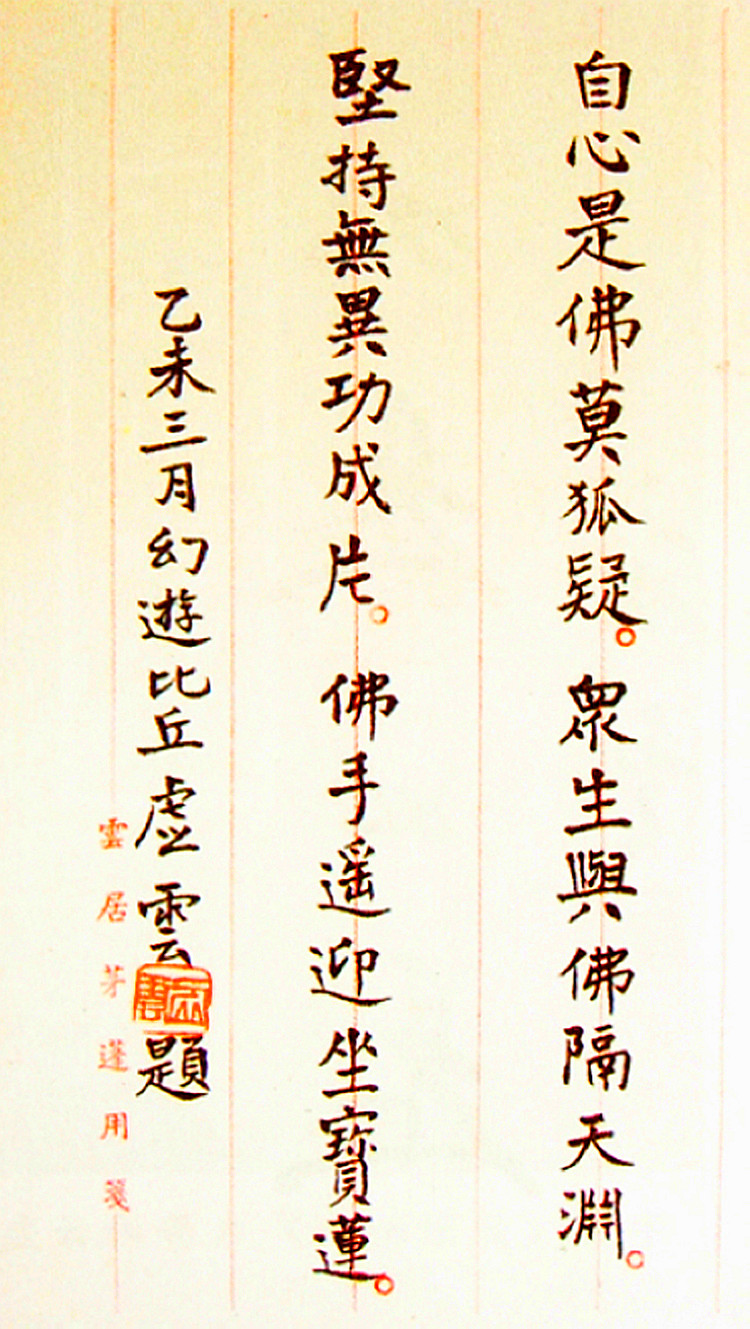 自心是佛莫狐疑。眾生與佛隔天淵。
堅持無異功成片。佛手遥迎坐寶蓮。
乙未三月幻遊比丘虛雲題
雲居茅蓬用箋